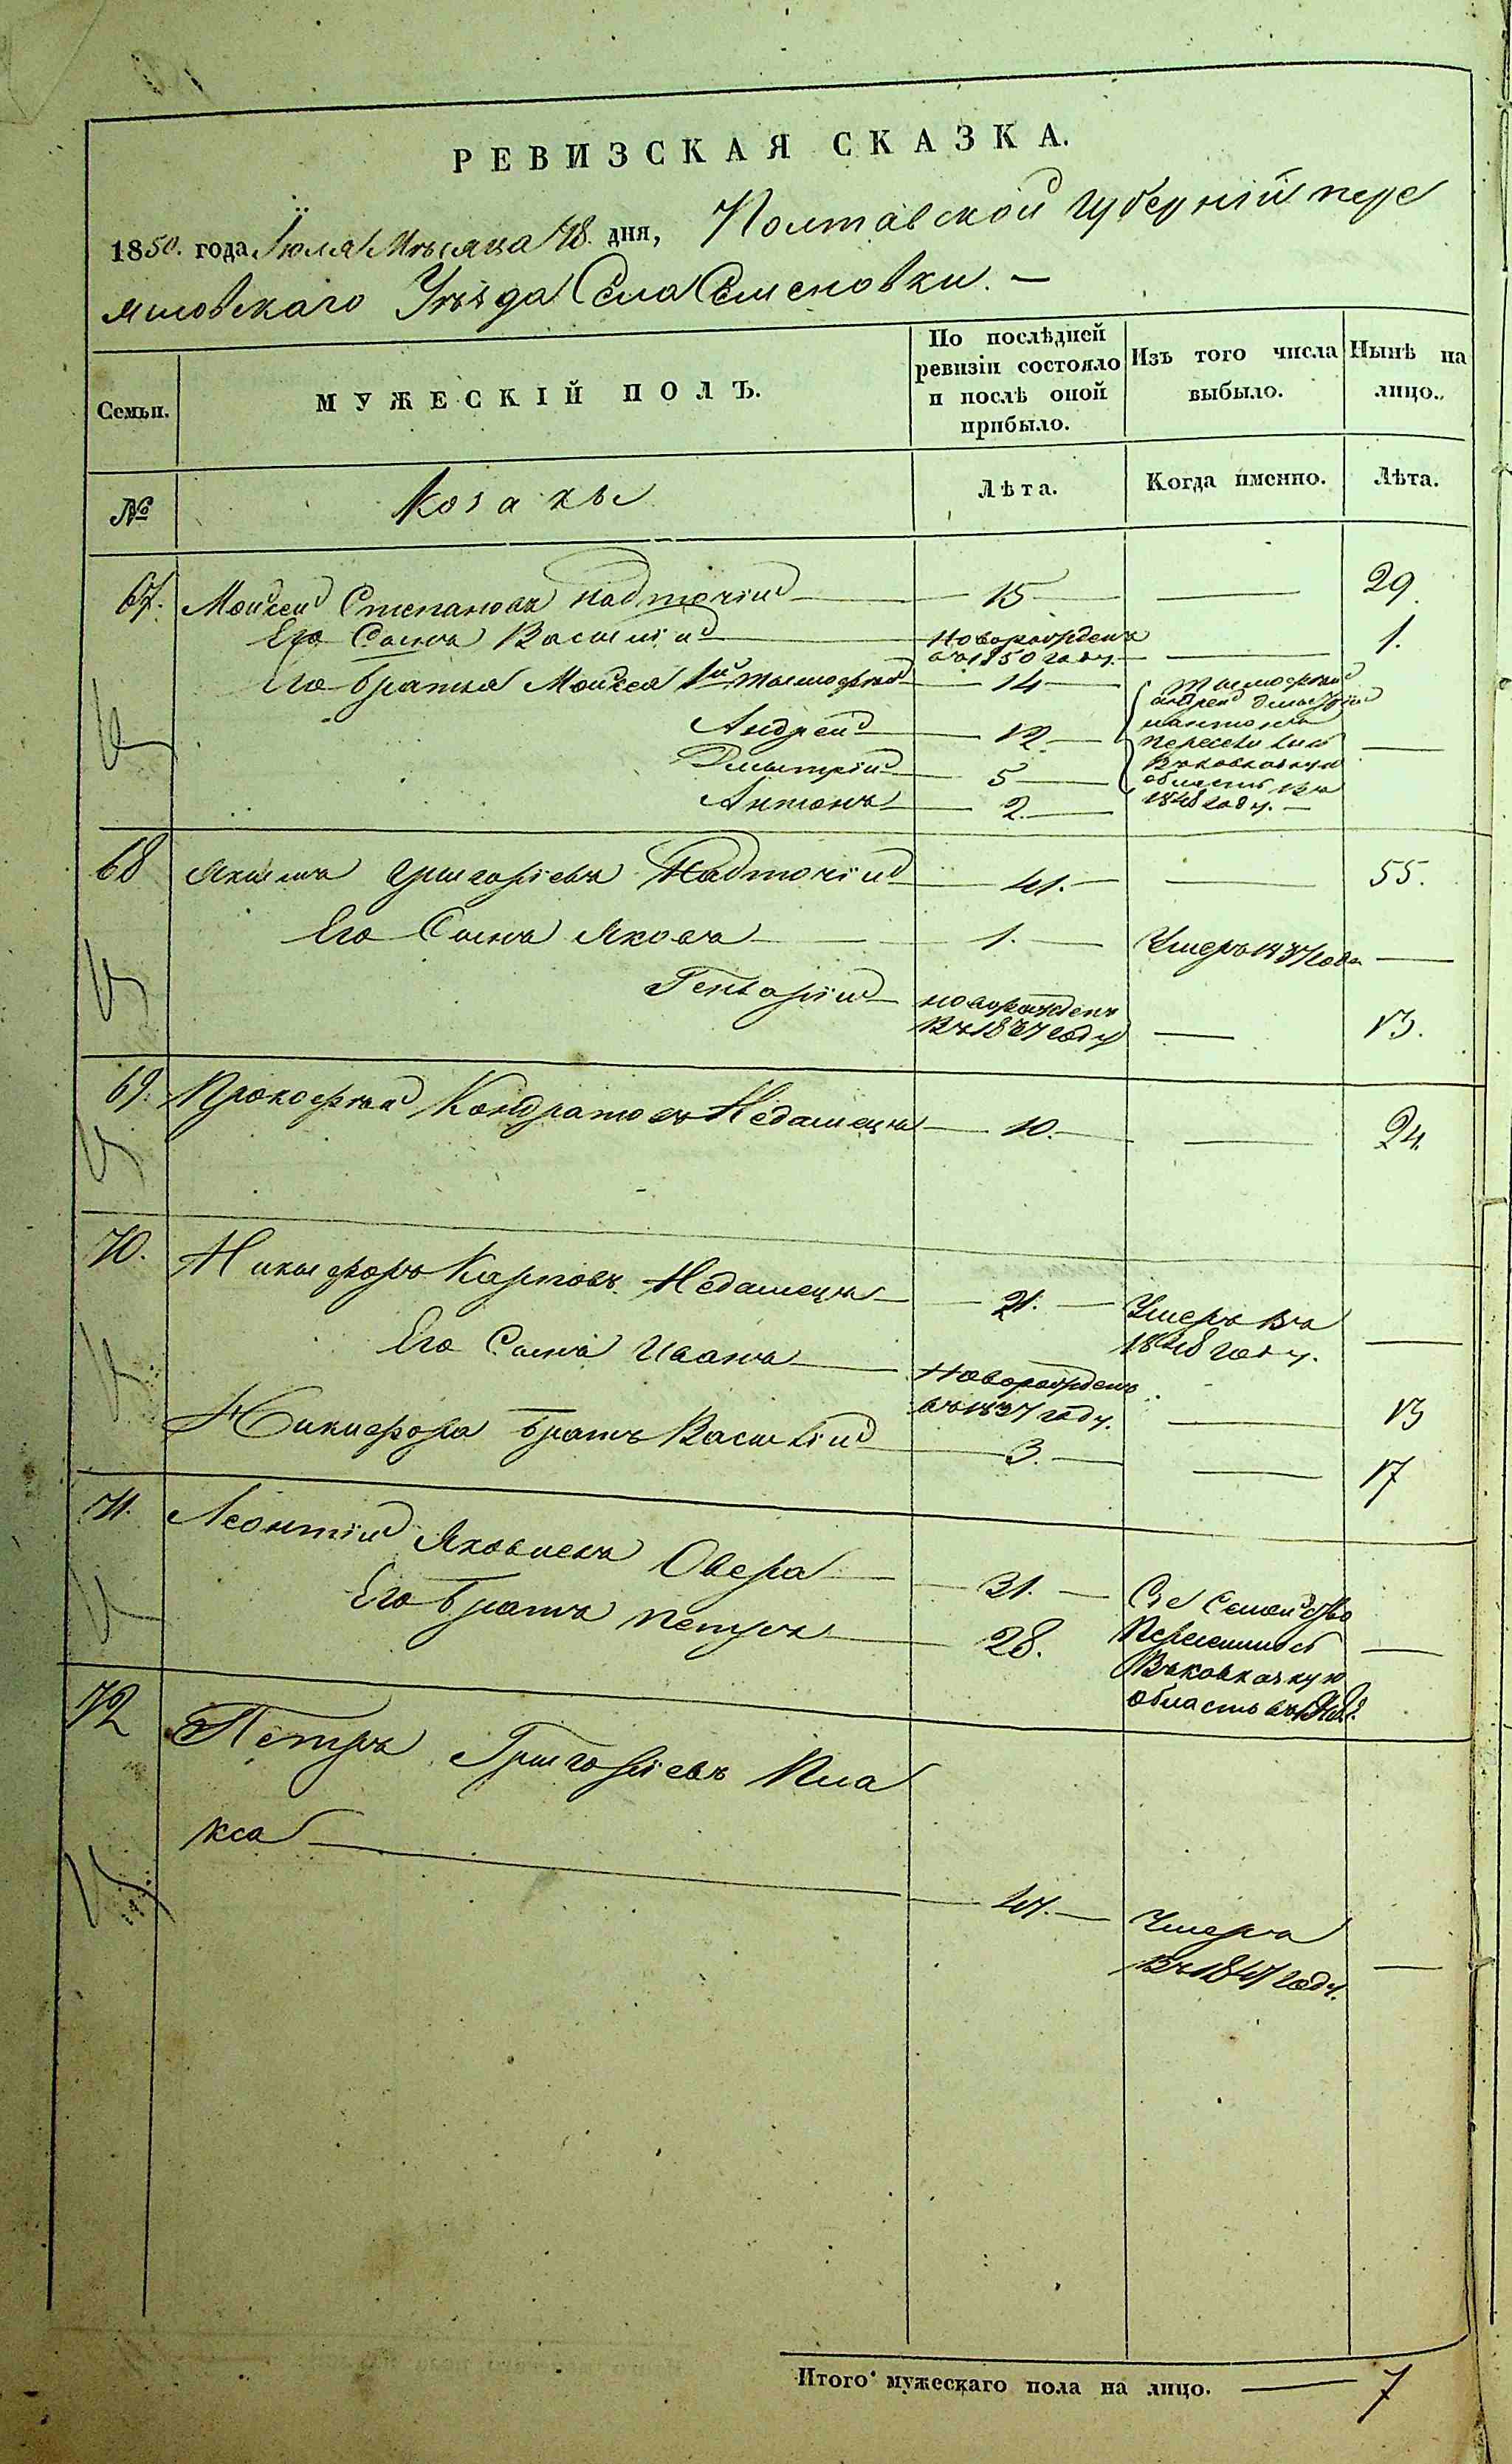 РЕВИЗСКАЯ СКАЗКА.
1850. года Іюля Мѣсяца 18. дня, Полтавской Губерніи пере
яславскаго Уѣзда Села Семеновки. —
Семьи. МУЖЕСКІЙ ПОЛЪ. По послѣдней ревизіи состояло и послѣ оной прибыло. Изъ того числа выбыло. Нынѣ на лицо.
№ Козаки Лѣта. Когда именно. Лѣта.
67. Моисей Степановъ Надточій — 15 — — 29.
Его Сынъ Василій — Новорожденъ въ 1850 году. — — 1.
Его братья Моисея 1й Тимофей — 14 —
Андрей — 12. —
Дмитрій — 5 —
Антонъ — 2. —
Тимофей
Андрей Дмитрій
и Антонъ
переселились
въ Кавказкую
область въ
1848 году. —
68 Якимъ Григоріевъ Надточій — 41. — — 55.
Его Сынъ Яковъ — 1. — Умеръ 1837 года —
Григорій — новорожденъ въ 1837 году — 13.
69. Прокофій Кондратовъ — 10. — — 24.
70. Никифоръ Карповъ — 21. — Умеръ въ 1848 году. —
Его Сынъ Иванъ — Новорожденъ въ 1837 году. — 13
Никифора братъ Василій — 3. — — 17
71. Леонтій Яковлевъ Овера — 31. —
Его братъ Петръ — 28.
Сіе Семейство
Переселилось
Въ Кавказкую
область въ
72 Петръ Григоріевъ Пла
кса — 47. — Умеръ
въ 1847 году. —
Итого мужескаго пола на лицо. — 7